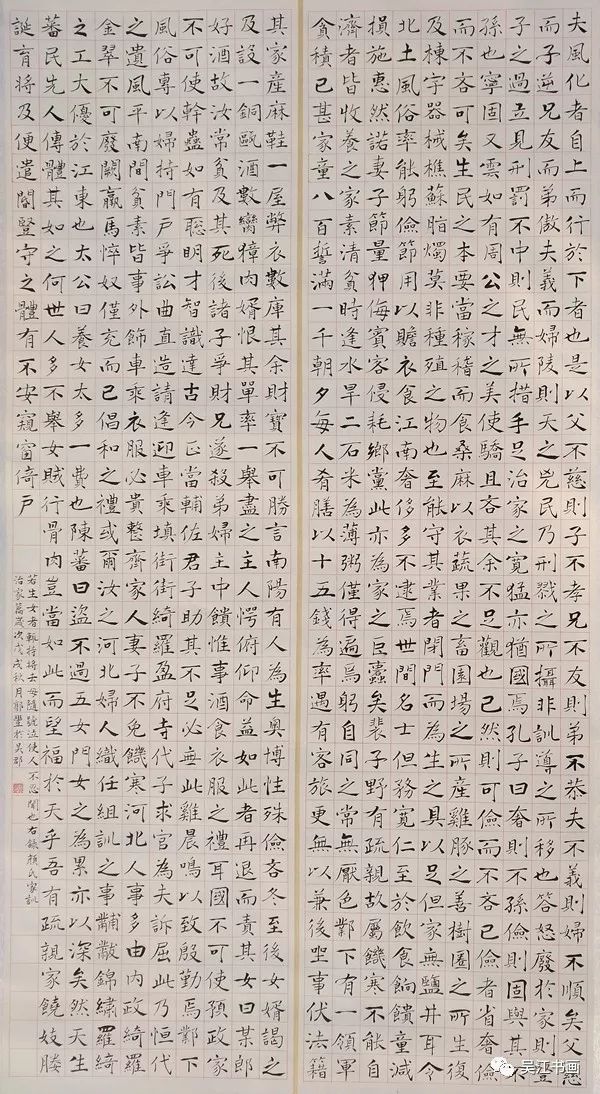 夫風化者自上而行於下者也是以父不慈則子不孝兄不友則弟不恭夫不義則婦不順矣父慈
而子逆兄友而弟傲夫義而婦陵則天之兇民乃刑戮之所攝非訓導之所移也笞怒廢於家則豎
子之過立見刑罰不中則民無所措手足治家之寬猛亦猶國焉孔子曰奢則不孫儉則固與其不
孫也寧固又雲如有周公之才之美使驕且吝其余不足觀也已然則可儉而不吝已儉者省奢儉
而不吝可矣生民之本要當稼穡而食桑麻以衣蔬果之畜園場之所產雞豚之善樹圈之所生復
及棟宇器械樵蘇脂燭莫非種殖之物也至能守其業者閉門而為生之具以足但家無鹽井耳令
北土風俗率能躬儉節用以贍衣食江南奢侈多不逮焉世間名士但務寬仁至於飲食餉饋童減
損施惠然諾妻子節量狎侮賓客侵耗鄉黨此亦為家之巨蠹矣裴子野有疏親故屬饑寒不能自
濟者皆收養之家素清貧時逢水旱二石米為薄粥僅得遍焉躬自同之常無厭色鄴下有一領軍
貪積已甚家童八百誓滿一千朝夕每人肴膳以十五錢為率遇有客旅更無以兼後坐事伏法籍
其家產麻鞋一屋弊衣數庫其余財寶不可勝言南陽有人為生奧博性殊儉吝冬至後女婿謁之
及設一銅甌酒數臠獐肉婿恨其單率一舉盡之主人愕俯仰命益如此者再退而責其女曰某郎
好酒故汝常貧及其死後諸子爭財兄遂殺弟婦主中饋惟事酒食衣服之禮耳國不可使預政家
不可使幹蠱如有聰明才智識達古今正當輔佐君子助其不足必無此雞晨鳴以致殷勤焉鄴下
風俗專以婦持門戶爭訟曲直造請逢迎車乘填街街綺羅盈府寺代子求官為夫訴屈此乃恒代
之遺風乎南間貧素皆事外飾車乘衣服必貴整齊家人妻子不免饑寒河北人事多由內政綺羅
金翠不可廢闕羸馬悴奴僅充而已倡和之禮或爾汝之河北婦人織任組訓之事黼黻錦繡羅綺
之工大優於江東也太公曰養女太多一費也陳蕃曰盜不過五女門女之為累亦以深矣然天生
蕃民先人傳體其如之何世人多不舉女賊行骨肉豈當如此而望福於天乎吾有疏親家饒妓媵
誕育將及便遣閽豎守之體有不安窺窗倚戶
若生女者輒持將去母隨號泣使人不忍聞也右錄顏氏家訓
治家篇歲次戊戌秋月於吳郡
吴江书画